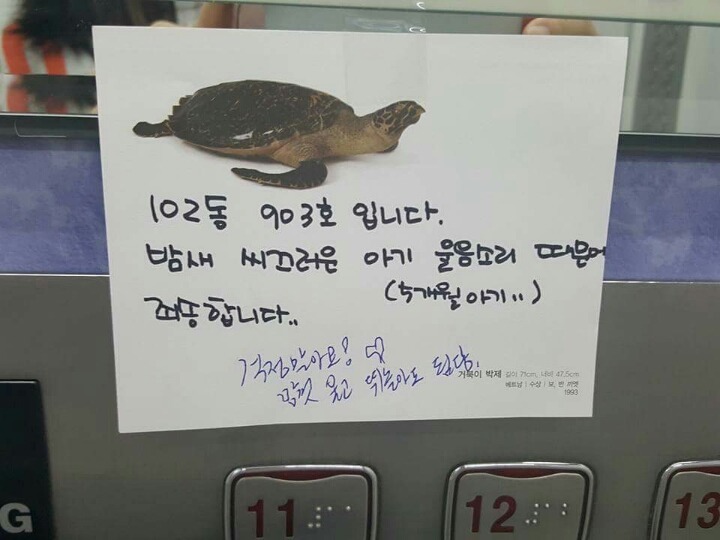 102동 903호 입니다.
밤새 씨끄러운 아기 울음소리 때문에
죄송합니다..
(5개월 아기..)
걱정말아요!
맘껏 울고 뛰놀아도 된담.
거북이 박제 길이 71cm, 너비 47.5cm
베트남 | 수상 | 보, 반 끼엣
1993
G
11
12
13